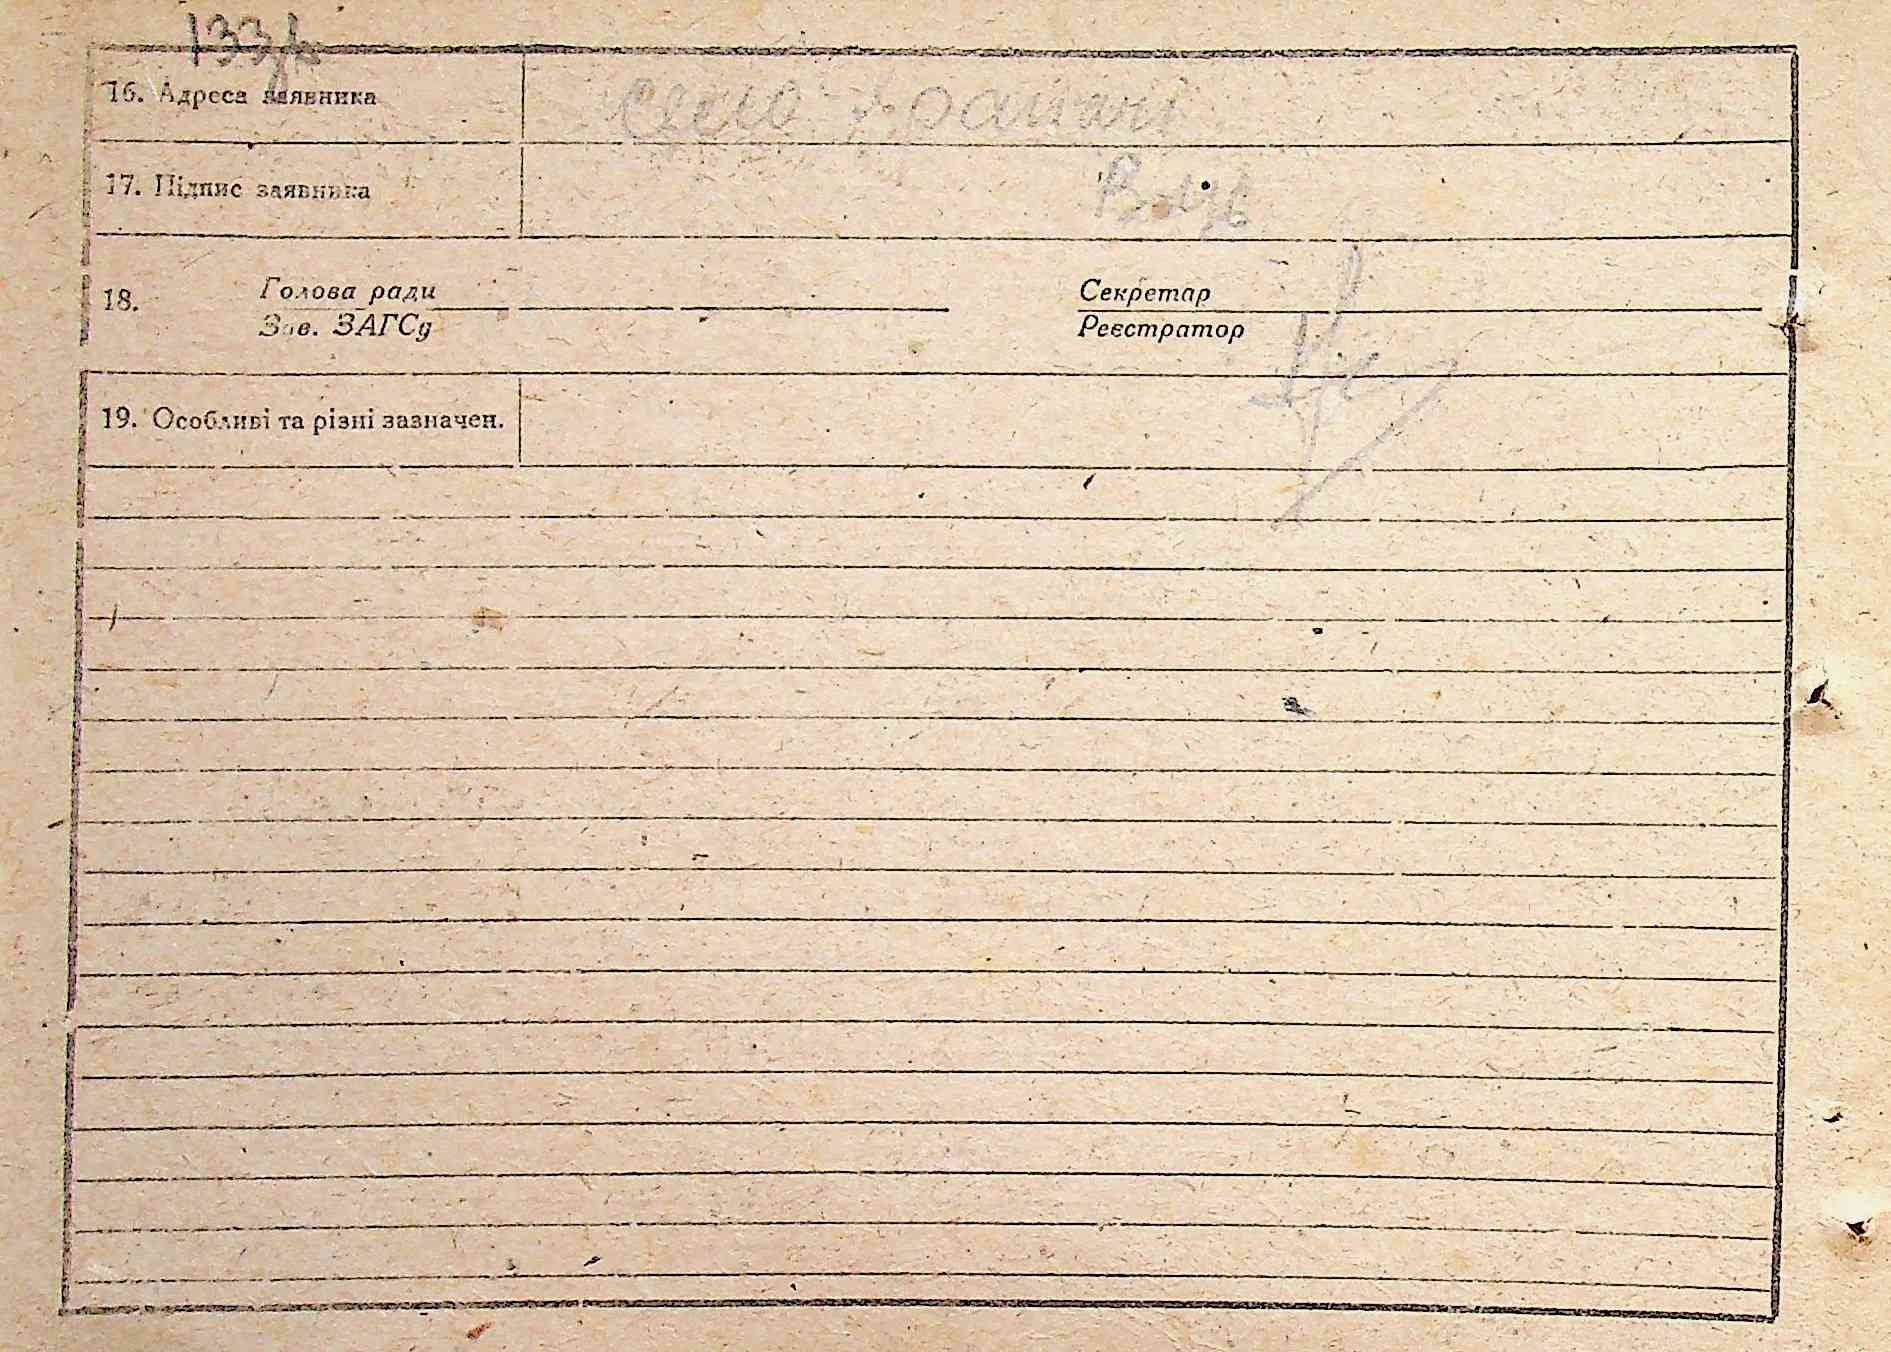 133
16. Адреса заявника село
17. Підпис заявника
18. Голова ради Секретар
Зав. ЗАГСу Реєстратор
19. Особливі та різні зазначен.